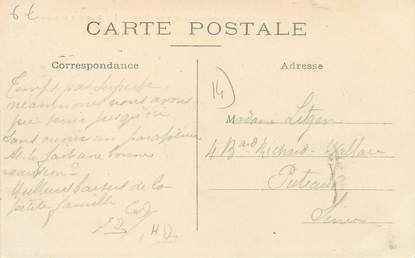 6€
CARTE POSTALE
Correspondance
Adresse
14
Temps pas superbe
neanmoins nous avons
pu venir jusqu'ici
sans ouvrir
fait une bonne
Meilleurs baisers de la
petite famille
Madame
4 Bard Richard-Wallace
Puteaux
Seine